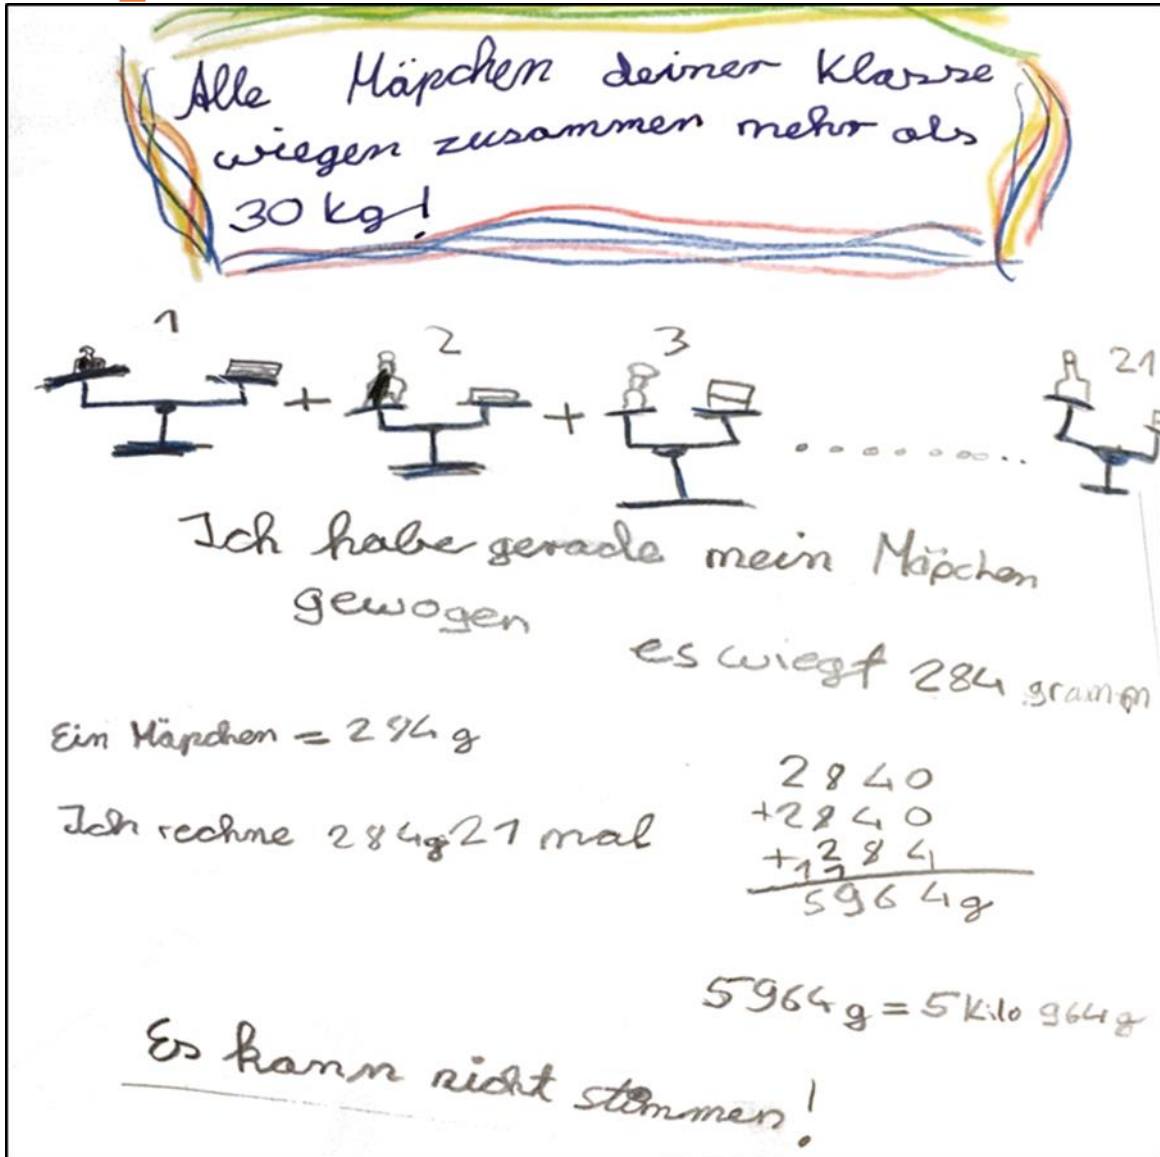 Alle Mäpchen deiner Klasse
wiegen zusammen mehr als
30 kg!
1
2
3
21
+ +
Ich habe gerade mein Mäpchen
gewogen
es wiegt 284 gramm
Ein Mäpchen = 284 g
Ich rechne 284g 21 mal
2840
+2840
+284
11
5964g
5964g = 5 kilo 964g
Es kann nicht stimmen!